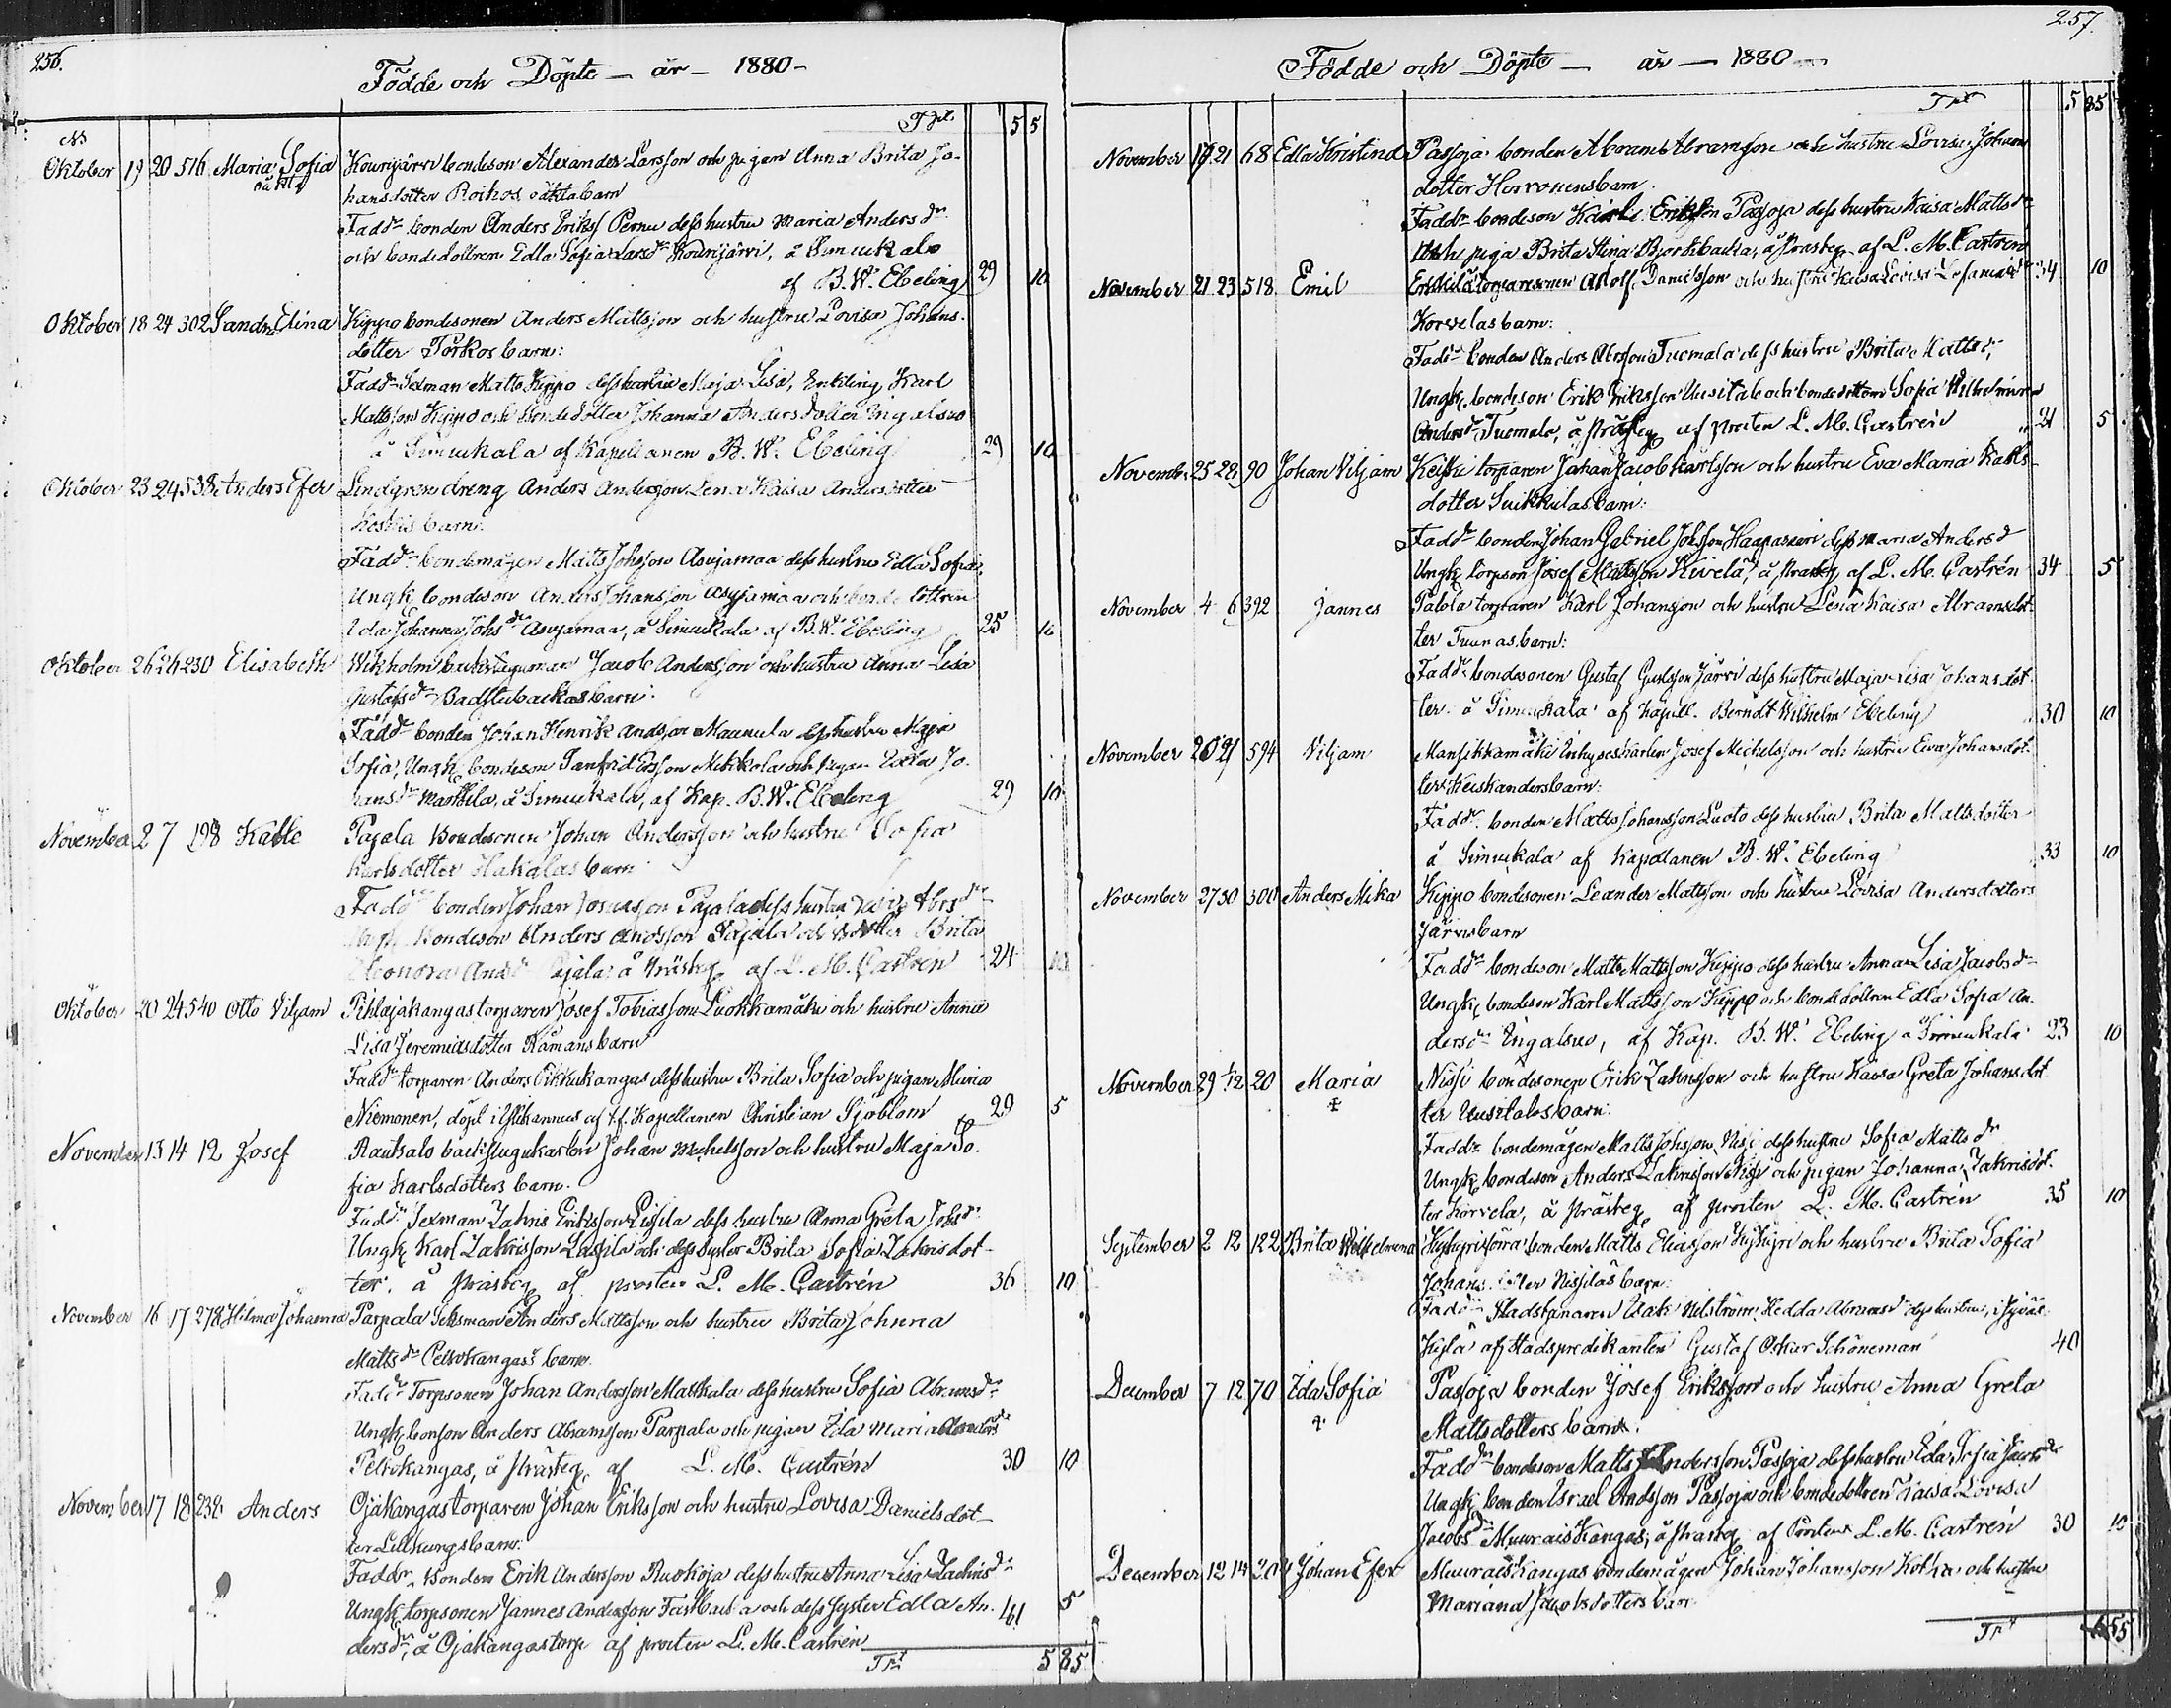 256.
Födde och Döpte — år — 1880 —
Tpt. 5 5
NS
Oktober 19 20 516 Maria Sofia Kourijärvi bondeson Alexander Larsson och pigan Anna Brita Jo-
oäkta hansdotter Roihos oäkta barn
Faddr bonden Anders Erikss Pernu dess hustru Maria Andersdr
och bondedottren Edla Sofia Larsdr Kourijärvi, å Simukala
af B. W. Ebeling 29 10
Oktober 18 24 302 Sandra Elina Kippo bondesonen Anders Mattsson och hustru Lovisa Johans-
dotter Torkos barn:
Faddr Sexman Matts Kippo dess hustru Maja Lisa, Enkling Karl
Mattsson Kippo och bondedotter Johanna Andersdotter Ingalsuo
å Simukala af Kapellanen B. W. Ebeling 29 10
Oktober 23 24 538 Anders Efer Lindgren dreng Anders Andersson Lena Kaisa Andersdotter
Koskis barn:
Faddr bondemågen Matts Johsson Asujamaa dess hustru Edla Sofia,
Ungk. bondeson Anders Johansson Asujamaa och bondedottren
Ida Johanna Johsdr Asujamaa, å Simukala af B. W. Ebeling 25 10
Oktober 26 26 230 Elisabeth Wikholm backstuguman Jacob Andersson och hustru Anna Lisa
Gustafsdr Badstubackas barn:
Faddr bonden Johan Henrik Andsson Maunula dess hustru Maja
Sofia, Ungk. bondeson Tanfrid Ersson Mikkola och pigan Edla Jo-
hansdr Marttila, å Simukala, af Kap. B. W. Ebeling 29 10
November 2 7 198 Kalle Pajala Bondesonen Johan Andersson och hustru Sofia
Karlsdotter Hakalas barn
Faddr bonden Johan Josuasson Pajala dess hustru Abrsdr
Ungk. Bondeson Anders Andsson Pajala och Brita
Eleonora Andr Pajala å Prästeg. af L. M. Castrén 24 10
Oktober 20 24 540 Otto Viljam Pihlajakangas torparen Josef Tobiasson Luokkamäki och hustru Anna
Lisa Jeremiasdotter Råmans barn
Faddr torparen Anders Pikkukangas dess hustru Brita Sofia och pigan Maria
Niemonen, döpt i Ylikannus af t.f. Kapellanen Christian Sjöblom 29 5
November 13 14 12 Josef Rautsalo backstugukarlen Johan Michelsson och hustru Maja So-
fia Karlsdotters barn.
Faddr Sexman Zakris Eriksson Lassila dess hustru Anna Greta Johsdr
Ungk. Karl Zakrisson Lassila och dess syster Brita Sofia Zakrisdot-
ter. å prästeg. af prosten L. M. Castrén 36 10
November 16 17 278 Hilma Johanna Parpala Seksman Anders Mattsson och hustru Brita Johanna
Mattsdr Peltokangass barn.
Faddr Torpsonen Johan Andersson Mattkala dess hustru Sofia Abramsdr
Ungk. bonson Anders Abramsson Parpala och pigan Ida Maria
Peltokangas, å prästeg. af L. M. Castrén 30 10
November 17 18 232 Anders Ojakangas torparen Johan Eriksson och hustru Lovisa Danielsdot-
ter Lillkungs barn:
Faddr. Bonden Erik Andersson Ruokoja dess hustru Anna Lisa Zachrisdr
Ungk. torpsonen Jannes Andersson Fastbacka och dess syster Edla An- 41 5
dersdr, å Ojakangas torp af prosten L. M. Castrén
Tpt 5 85.
257.
Födde och Döpte — år — 1880 —
Tpt 5 85
November 19 21 68 Edla Kristina Passoja bonden Abram Abramsson och hustru Lovisa Johans-
dotter Herronens barn.
Faddr bondeson Karl Eriksson Passoja dess hustru Kaisa Mattsdr
och piga Brita Stina Björkbacka, å prästeg. af L. M. Castrén 34 10
November 21 23 518 Emil Erkkilä torparesonen Adolf Danielsson och hustru Kaisa Lovisa
Korvelas barn:
Faddr bonden Anders Abrsson Tuomala dess hustru Brita Mattsdr,
Ungk. bondeson Erik Eriksson Uusitalo och bondedottern Sofia Wilhelmina
Andersdr Tuomala, å prästeg. af prosten L. M. Castrén 21 5
November 25 28 90 Johan Viljam Keiski torparen Johan Jacob Karlsson och hustru Eva Maria Karls-
dotter Suikkulas barn:
Faddr bonden Johan Gabriel Johsson Haapasaari dess Maria Andersd
Ungk. torpson Josef Mattsson Kivelä, å prästeg. af L. M. Castrén 34 5
November 4 6 392 Jannes Palola torparen Karl Johansson och hustru Lena Kaisa Abramsdot-
ter Tuunas barn:
Faddr bondesonen Gustaf Gustsson Järvi dess hustru Maja Lisa Johansdot-
ter. å Simukala af Kapell. Berndt Wilhelm Ebeling 30 10
November 20 21 594 Viljam Mansikkamäki Inhyseskarlen Josef Michelsson och hustru Eva Johansdot-
ter Keiskanders barn:
Faddr. bonden Matts Johansson Luoto dess hustru Brita Mattsdotter
å Simukala af Kapellanen B. W. Ebeling 33 10
November 27 30 300 Anders Mika Kippo bondesonen Leander Mattsson och hustru Lovisa Andersdotters
Järvis barn
Faddr bondeson Matts Mattsson Kippo dess hustru Anna Lisa Jacobsdr
Ungk. bondeson Karl Mattsson Kippo och bondedottren Edla Sofia An-
dersdr Ingalsuo, af Kap. B. W. Ebeling å Simukala 23 10
November 29 1/12 20 Maria Nissi bondesonen Erik Zakrisson och hustru Kaisa Greta Johansdot-
ter Uusitalos barn:
Faddr bondemågen Matts Johsson Nissi dess hustru Sofia Mattsdr
Ungk. bondeson Anders Zakrisson Nissi och pigan Johanna Zakrisdot-
ter Korvela, å prästeg. af prosten L. M. Castrén 35 10
September 2 12 122 Brita Wilhelmina bonden Matts Eliasson och hustru Brita Sofia
Johansdotter Nissiläs barn:
Faddr Stadstjenaren Isak Hedda Abramsdr dess hustru, i Jyväs-
kylä af stadspredikanten Gustaf Oskar Schöneman 40
December 7 12 70 Ida Sofia Passoja bonden Josef Eriksson och hustru Anna Greta
Mattsdotters barn.
Faddr bondeson Matts Andersson Passoja dess hustru Eda Sofia Jacobsdr
Ungk. bonden Israel Andsson Passoja och bondedottren Kaisa Lovisa
Jacobsdr Muuraiskangas, å prästeg. af Prosten L. M. Castrén 30 10
December 12 14 204 Johan Efer Muuraiskangas bondemågen Johan Johansson Kotka och hustru
Mariana Jacobsdotters barn
Tpt 6 55